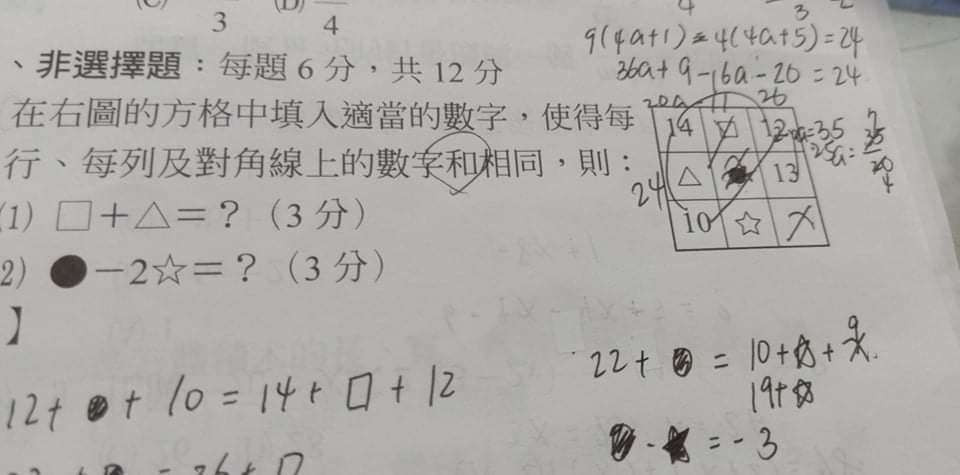 (C) 3 (D) 4
4 3 2
9(4a+1) = 4(4a+5) = 24
36a + 9 - 16a - 20 = 24
、非選擇題：每題 6 分，共 12 分
20a 11 26
在右圖的方格中填入適當的數字，使得每
行、每列及對角線上的數字和相同，則：
14 □ 12
24 △ 13
10 ☆ X
a = 35
(1) □＋△＝？（3 分）
2) ●－2☆＝？（3 分）
】
22 + ● = 10 + ☆ + 9
19 + ☆
12 + ● + 10 = 14 + □ + 12
● - ★ = - 3